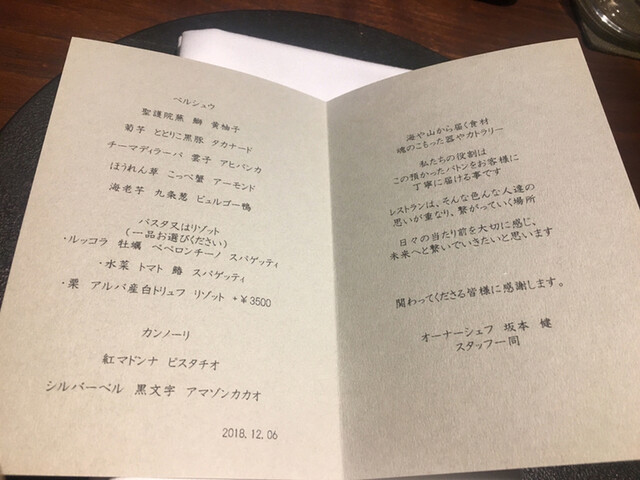 ペルシュウ
聖護院蕪 鰤 黄柚子
菊芋 ととりこ黒豚 タカナード
チーマディラーパ 雲子 アヒバンカ
ほうれん草 こっぺ蟹 アーモンド
海老芋 九条葱 ビュルゴー鴨
パスタ又はリゾット
(一品お選びください)
・ルッコラ 牡蠣 ペペロンチーノ スパゲッティ
・水菜 トマト 鰆 スパゲッティ
・栗 アルバ産白トリュフ リゾット +¥3500
カンノーリ
紅マドンナ ピスタチオ
シルバーベル 黒文字 アマゾンカカオ
2018.12.06
海や山から届く食材
魂のこもった器やカトラリー
私たちの役割は
この預かったバトンをお客様に
丁寧に届ける事です
レストランは、そんな色んな人達の
思いが重なり、繋がっていく場所
日々の当たり前を大切に感じ、
未来へと繋いでいきたいと思います
関わってくださる皆様に感謝します。
オーナーシェフ 坂本 健
スタッフ一同